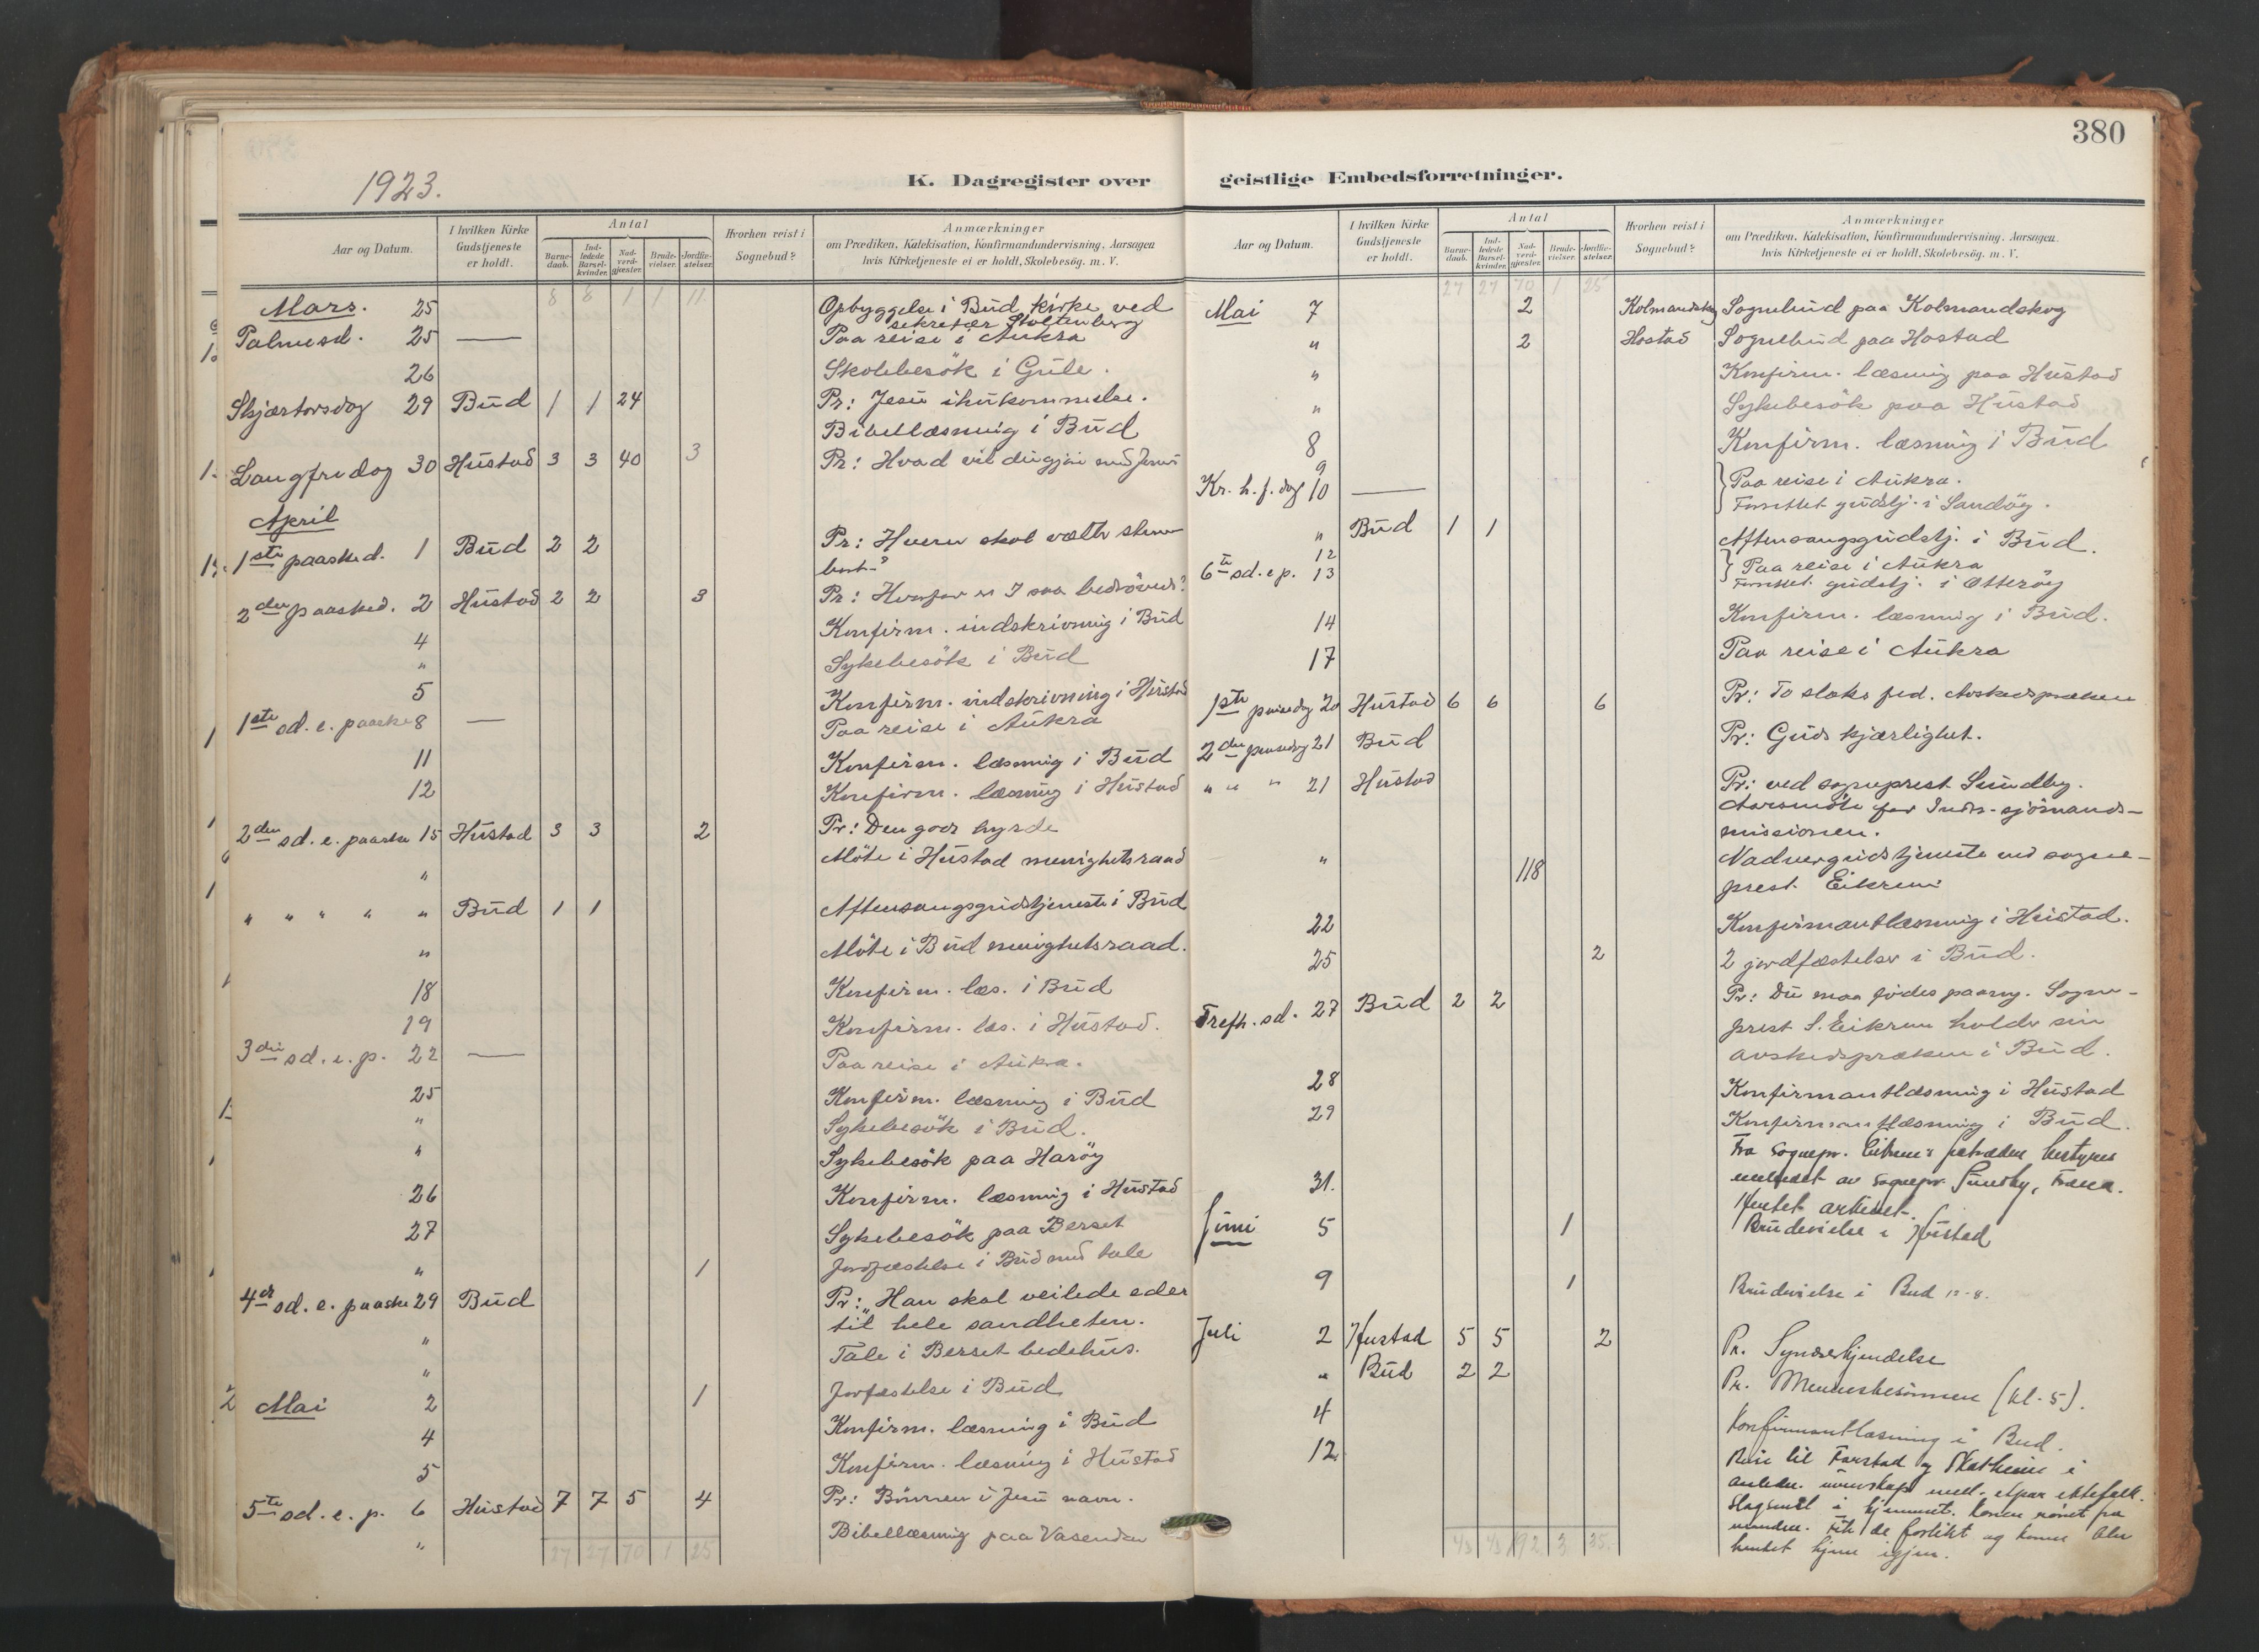 380
1923.
K. Dagregister over geistlige Embedsforretninger.
Aar og Datum. I hvilken Kirke Gudstjeneste er holdt. Antal Barnedaab. Indledede Barselkvinder. Nadverdgjæster. Brudevielser. Jordfæstelser. Hvorhen reist i Sognebud? Anmærkninger om Prædiken, Katekisation, Konfirmandundervisning, Aarsagen hvis Kirketjeneste ei er holdt, Skolebesøg. m. V.
8 8 1 1 11
Mars. 25 Opbyggelse i Bud kirke ved
sekretær Stoltenberg
Palmesd. 25 — Paa reise i Aukra
26 Skolebesök i Gule.
Skjærtorsdag 29 Bud 1 1 24 Pr: Jesu ihukommelse.
Bibellæsning i Bud
Langfredag 30 Hustad 3 3 40 3 Pr: Hvad vil du gjøre med Jesus
April
1ste paasked. 1 Bud 2 2 Pr: Hvem skal vælte stenen
bort?
2den paasked. 2 Hustad 2 2 3 Pr: Hvorfor er I saa bedrövede?
4 Konfirm. indskrivning i Bud
" Sykebesök i Bud
5 Konfirm. indskrivning i Hustad
1ste sd. e. paaske 8 — Paa reise i Aukra
11 Konfirm. læsning i Bud
12 Konfirm. læsning i Hustad
2den sd. e. paaske 15 Hustad 3 3 2 Pr: Den gode hyrde
" Möte i Hustad menighetsraad
" " " " " Bud 1 1 Aftensangsgudstjeneste i Bud
" Möte i Bud menighetsraad.
18 Konfirm. læs. i Bud
19 Konfirm. læs. i Hustad.
3die sd. e. p. 22 — Paa reise i Aukra.
25 Konfirm. læsning i Bud
" Sykebesök i Bud.
" Sykebesök paa Haröy
26 Konfirm. læsning i Hustad
27 Sykebesök paa Berset
" 1 Jordfæstelse i Bud med tale
4de sd. e. paaske 29 Bud Pr: "Han skal veilede eder
til hele sandheten.
" Tale i Berset bedehus.
" 1 Jordfæstelse i Bud
Mai 2 Konfirm. læsning i Bud
4 Konfirm. læsning i Hustad
5
5te sd. e. p. 6 Hustad 7 7 5 4 Pr: Bönnen i Jesu navn.
" Bibellæsning paa Vasenden
27 27 70 1 25
Aar og Datum. I hvilken Kirke Gudstjeneste er holdt. Antal Barnedaab. Indledede Barselkvinder. Nadverdgjæster. Brudevielser. Jordfæstelser. Hvorhen reist i Sognebud? Anmærkninger om Prædiken, Katekisation, Konfirmandundervisning, Aarsagen hvis Kirketjeneste ei er holdt, Skolebesøg. m. V.
27 27 70 1 25
Mai 7 2 Kolmandskog Sognebud paa Kolmandskog
" 2 Hostad Sognebud paa Hostad
" Konfirm. læsning paa Hustad
" Sykebesök paa Hustad
8 Konfirm. læsning i Bud
9 Paa reise i Aukra.
Kr. h. f. dag 10 — Forrettet gudstj. i Sandöy.
" Bud 1 1 Aftensangsgudstj. i Bud.
12 Paa reise i Aukra
6te sd. e p. 13 Forrettet gudstj. i Otteröy
14 Konfirm. læsning i Bud.
17 Paa reise i Aukra
1ste pinsedag 20 Hustad 6 6 6 Pr: To slaks fred. Avskedspræken
2den pinsedag 21 Bud Pr: Guds kjærlighet.
" " " 21 Hustad Pr: ved sogneprest Sundby.
Aarsmöte for Indr. sjömands-
missionen.
" 118 Nadvergudstjeneste ved sogne-
prest Eikrem
22 Konfirmantlæsning i Hustad.
25 2 2 jordfæstelser i Bud.
Trefh. sd. 27 Bud 2 2 Pr: Du maa födes paany. Sogne-
prest S. Eikrem holder sin
avskedspræken i Bud.
28 Konfirmantlæsning i Hustad
29 Konfirmantlæsning i Bud.
Fra sognepr. Eikrems fratræden bestyres
31. embedet av sognepr. Sundby, Fræna.
Hentet arkivet.
Juni 5 1 Brudevielse i Hustad
9 1 Brudevielse i Bud
Juli 2 Hustad 5 5 2 Pr. Synderkjendelse
" Bud 2 2 Pr. Menneskesönnen (kl. 5).
4 Konfirmantlæsning i Bud.
12. Reise til Farstad og i
anledn. uvenskap mell. etpar ektefolk.
Slagsmål i hjemmet. Konen römt fra
manden. Fik de forlikt og konen blev
hentet hjem igjen.
43 43 192 3 35